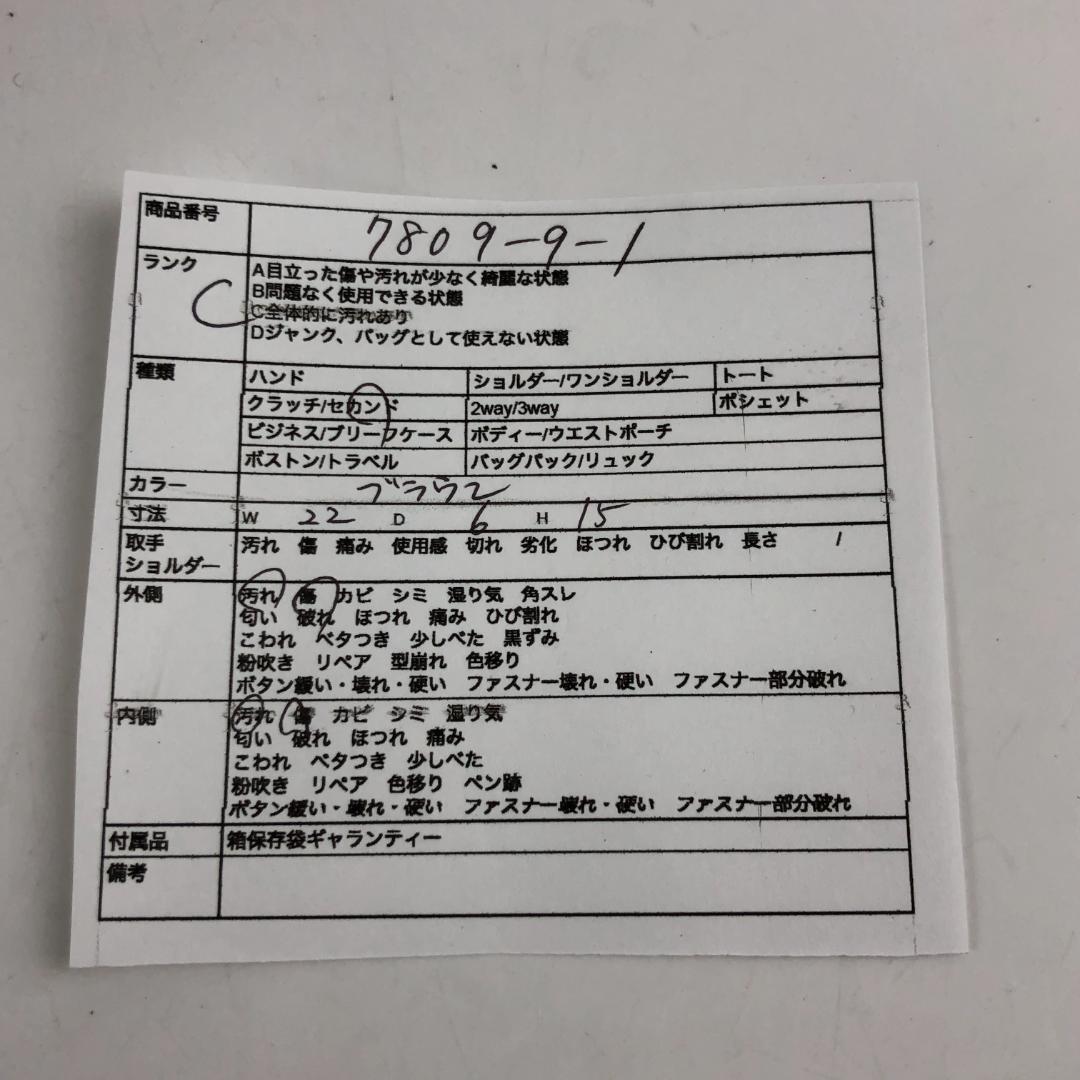 商品番号 7809-9-1
ランク C A目立った傷や汚れが少なく綺麗な状態
B問題なく使用できる状態
C全体的に汚れあり
Dジャンク、バッグとして使えない状態
種類 ハンド ショルダー/ワンショルダー トート
クラッチ/セカンド 2way/3way ポシェット
ビジネス/ブリーフケース ボディー/ウエストポーチ
ボストン/トラベル バッグパック/リュック
カラー ブラウン
寸法 W 22 D 6 H 15
取手 汚れ 傷 痛み 使用感 切れ 劣化 ほつれ ひび割れ 長さ /
ショルダー
外側 汚れ 傷 カビ シミ 湿り気 角スレ
匂い 破れ ほつれ 痛み ひび割れ
こわれ ベタつき 少しべた 黒ずみ
粉吹き リペア 型崩れ 色移り
ボタン緩い・壊れ・硬い ファスナー壊れ・硬い ファスナー部分破れ
内側 汚れ 傷 カビ シミ 湿り気
匂い 破れ ほつれ 痛み
こわれ ベタつき 少しべた
粉吹き リペア 色移り ペン跡
ボタン緩い・壊れ・硬い ファスナー壊れ・硬い ファスナー部分破れ
付属品 箱保存袋ギャランティー
備考